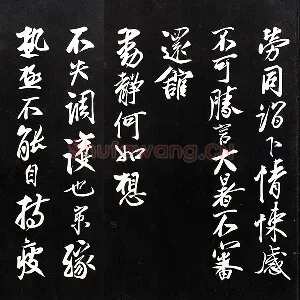 劳同诣下情悚感
不可胜言大暑不审
还馆
动静何如想
不失调护也宗缘
热毒不能自持疲